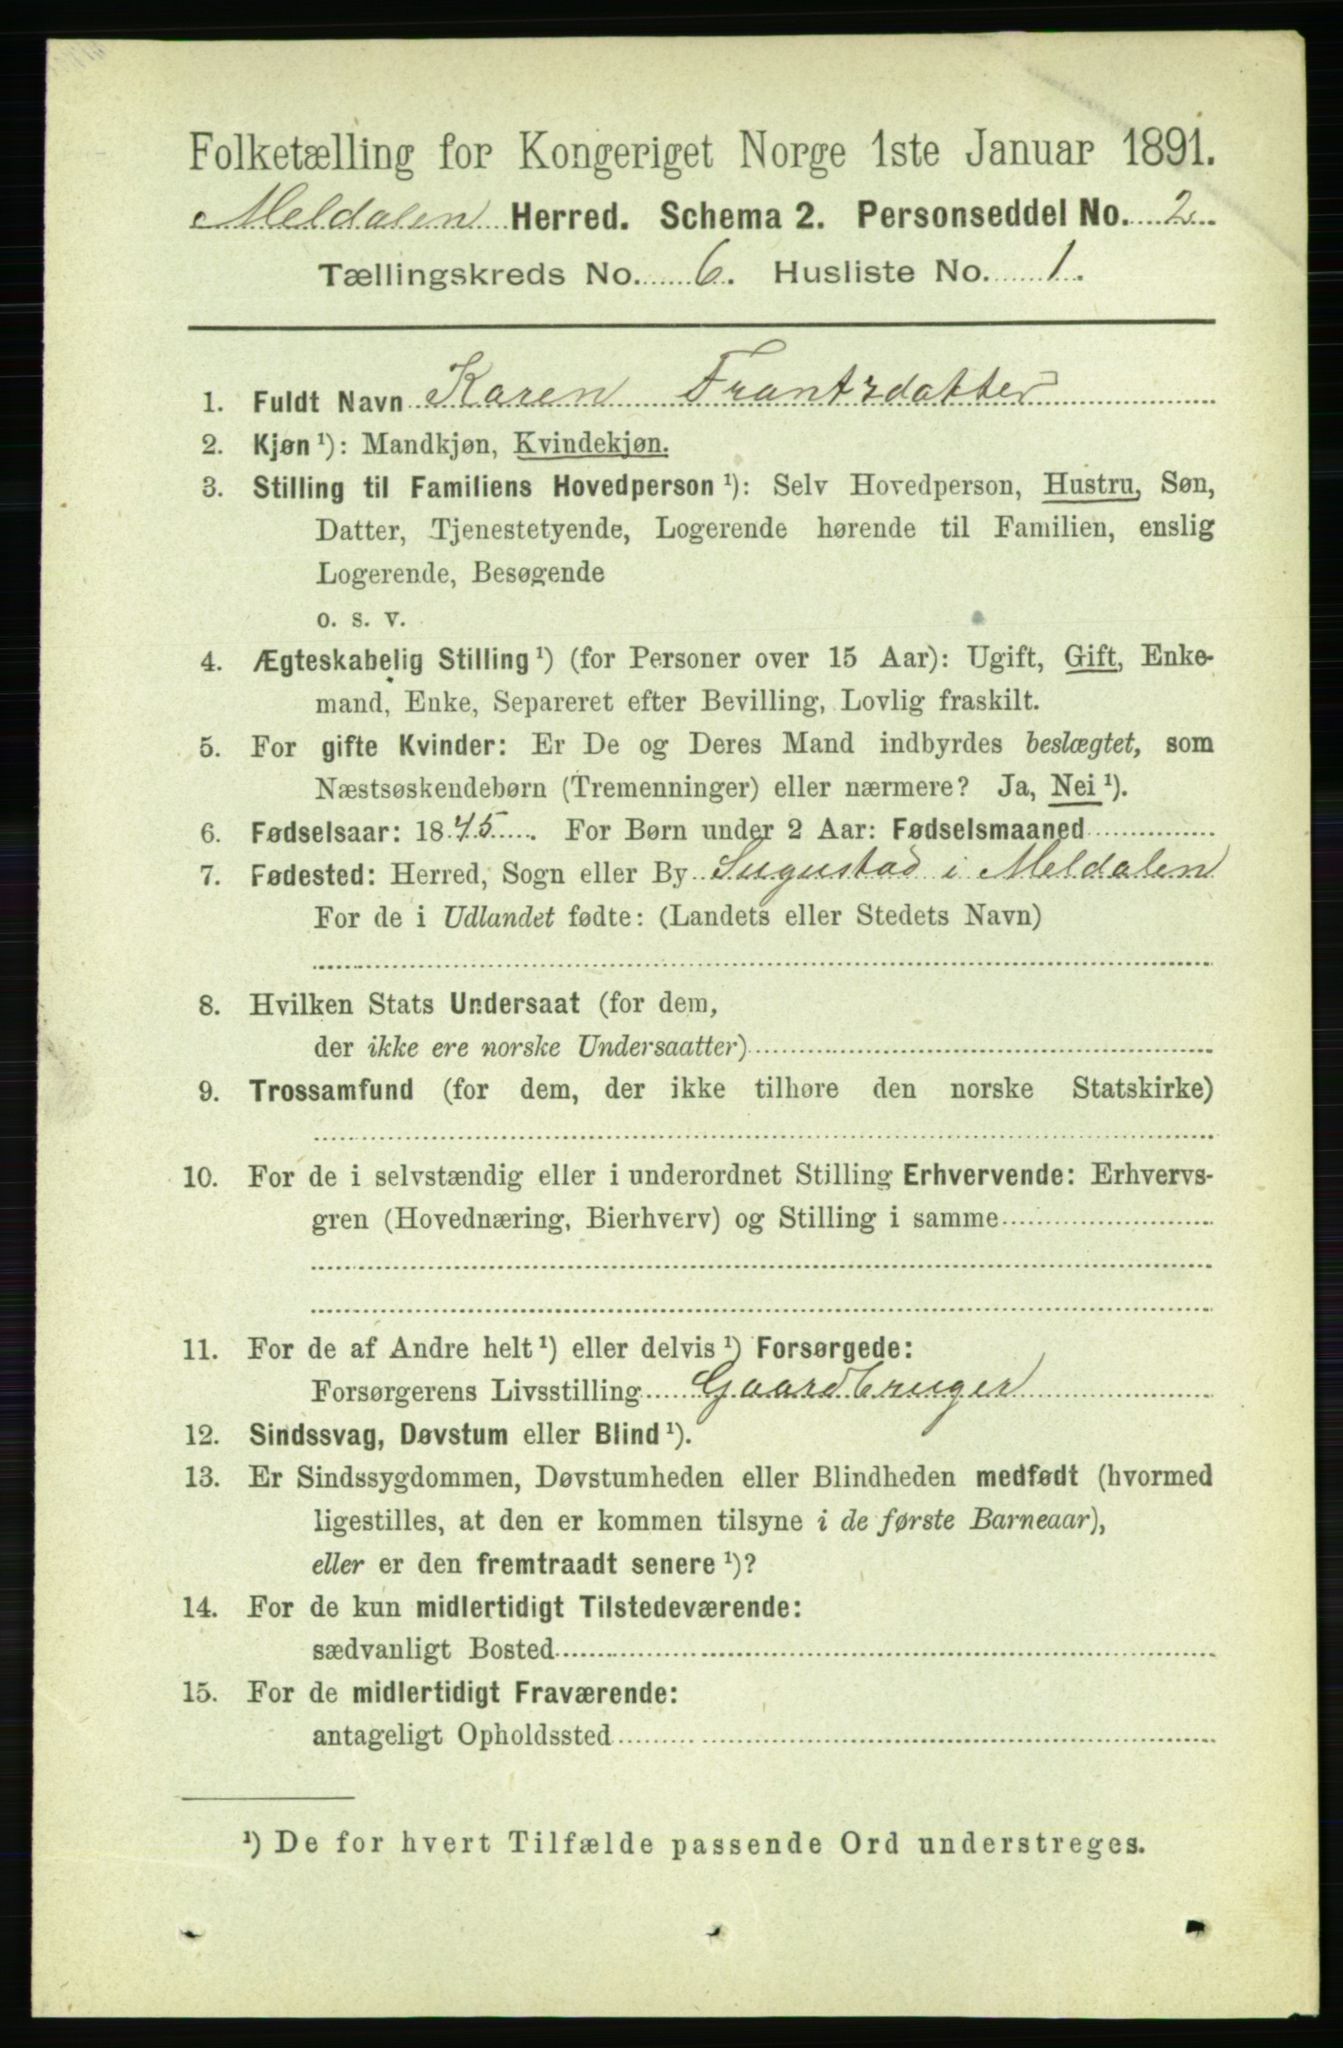 Folketælling for Kongeriget Norge 1ste Januar 1891.
Meldalen Herred. Schema 2. Personseddel No. 2.
Tællingskreds No. 6. Husliste No. 1.
1. Fuldt Navn Karen Frantsdatter
2. Kjøn ¹): Mandkjøn, Kvindekjøn.
3. Stilling til Familiens Hovedperson ¹): Selv Hovedperson, Hustru, Søn,
Datter, Tjenestetyende, Logerende hørende til Familien, enslig
Logerende, Besøgende
o. s. v.
4. Ægteskabelig Stilling ¹) (for Personer over 15 Aar): Ugift, Gift, Enke-
mand, Enke, Separeret efter Bevilling, Lovlig fraskilt.
5. For gifte Kvinder: Er De og Deres Mand indbyrdes beslægtet, som
Næstsøskendebørn (Tremenninger) eller nærmere? Ja, Nei ¹).
6. Fødselsaar: 1845. For Børn under 2 Aar: Fødselsmaaned
7. Fødested: Herred, Sogn eller By Sugustad i Meldalen
For de i Udlandet fødte: (Landets eller Stedets Navn)
8. Hvilken Stats Undersaat (for dem,
der ikke ere norske Undersaatter)
9. Trossamfund (for dem, der ikke tilhøre den norske Statskirke)
10. For de i selvstændig eller i underordnet Stilling Erhvervende: Erhvervs-
gren (Hovednæring, Bierhverv) og Stilling i samme
11. For de af Andre helt ¹) eller delvis ¹) Forsørgede:
Forsørgerens Livsstilling Gaardbruger
12. Sindssvag, Døvstum eller Blind ¹).
13. Er Sindssygdommen, Døvstumheden eller Blindheden medfødt (hvormed
ligestilles, at den er kommen tilsyne i de første Barneaar),
eller er den fremtraadt senere ¹)?
14. For de kun midlertidigt Tilstedeværende:
sædvanligt Bosted
15. For de midlertidigt Fraværende:
antageligt Opholdssted
¹) De for hvert Tilfælde passende Ord understreges.